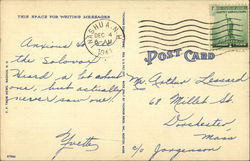 THIS SPACE FOR WRITING MESSAGES
NASHUA, N.H.
DEC 4
POST CARD
Anxious to
the Solovox
Heard a lot about
one, but actually
never saw one.
Yvette
Mr. Arthur Lessard
68 Millet St.
Dorchester,
Mass
c/o Jorgenson